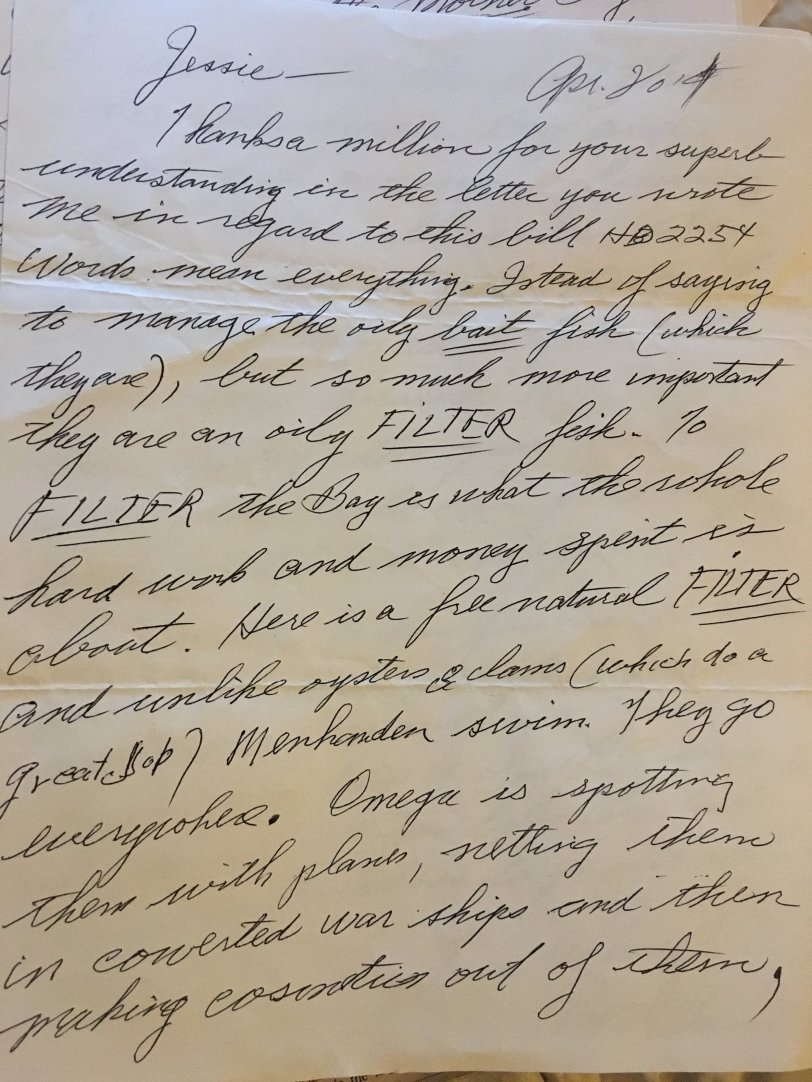 Jessie —
Apr. 2014
Thanks a million for your superb
understanding in the letter you wrote
me in regard to this bill HB2254
Words mean everything. Istead of saying
to manage the oily bait fish (which
they are), but so much more important
they are an oily FILTER fish. To
FILTER the Bay is what the whole
hard work and money spent is
about. Here is a free natural FILTER
and unlike oysters & clams (which do a
great job) Menhaden swim. They go
everywhere. Omega is spotting
them with planes, netting them
in cowerted war ships and then
making cosmetics out of them,